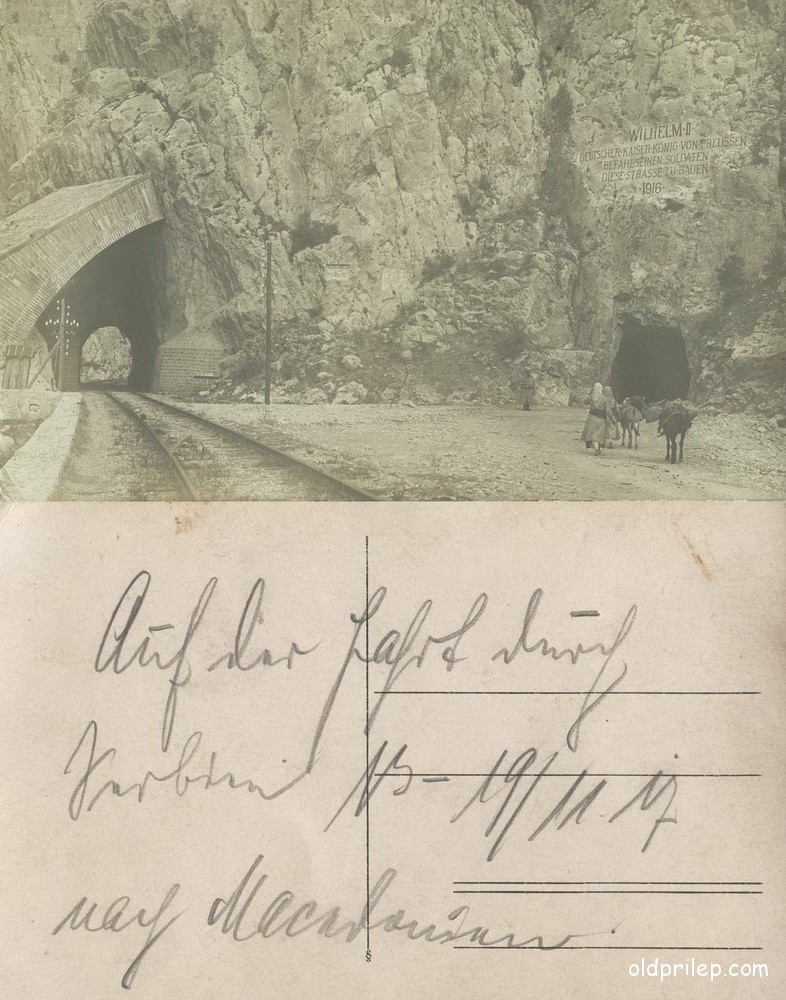 WILHELM·II·
DEUTSCHER·KAISER·KÖNIG·VON·PREUSSEN
BEFAHL·SEINEN·SOLDATEN
DIESE·STRASSE·ZU·BAUEN
·1916·
Auf der Fahrt durch
Serbien 13–19/11.17
nach Macedonien
§
oldprilep.com